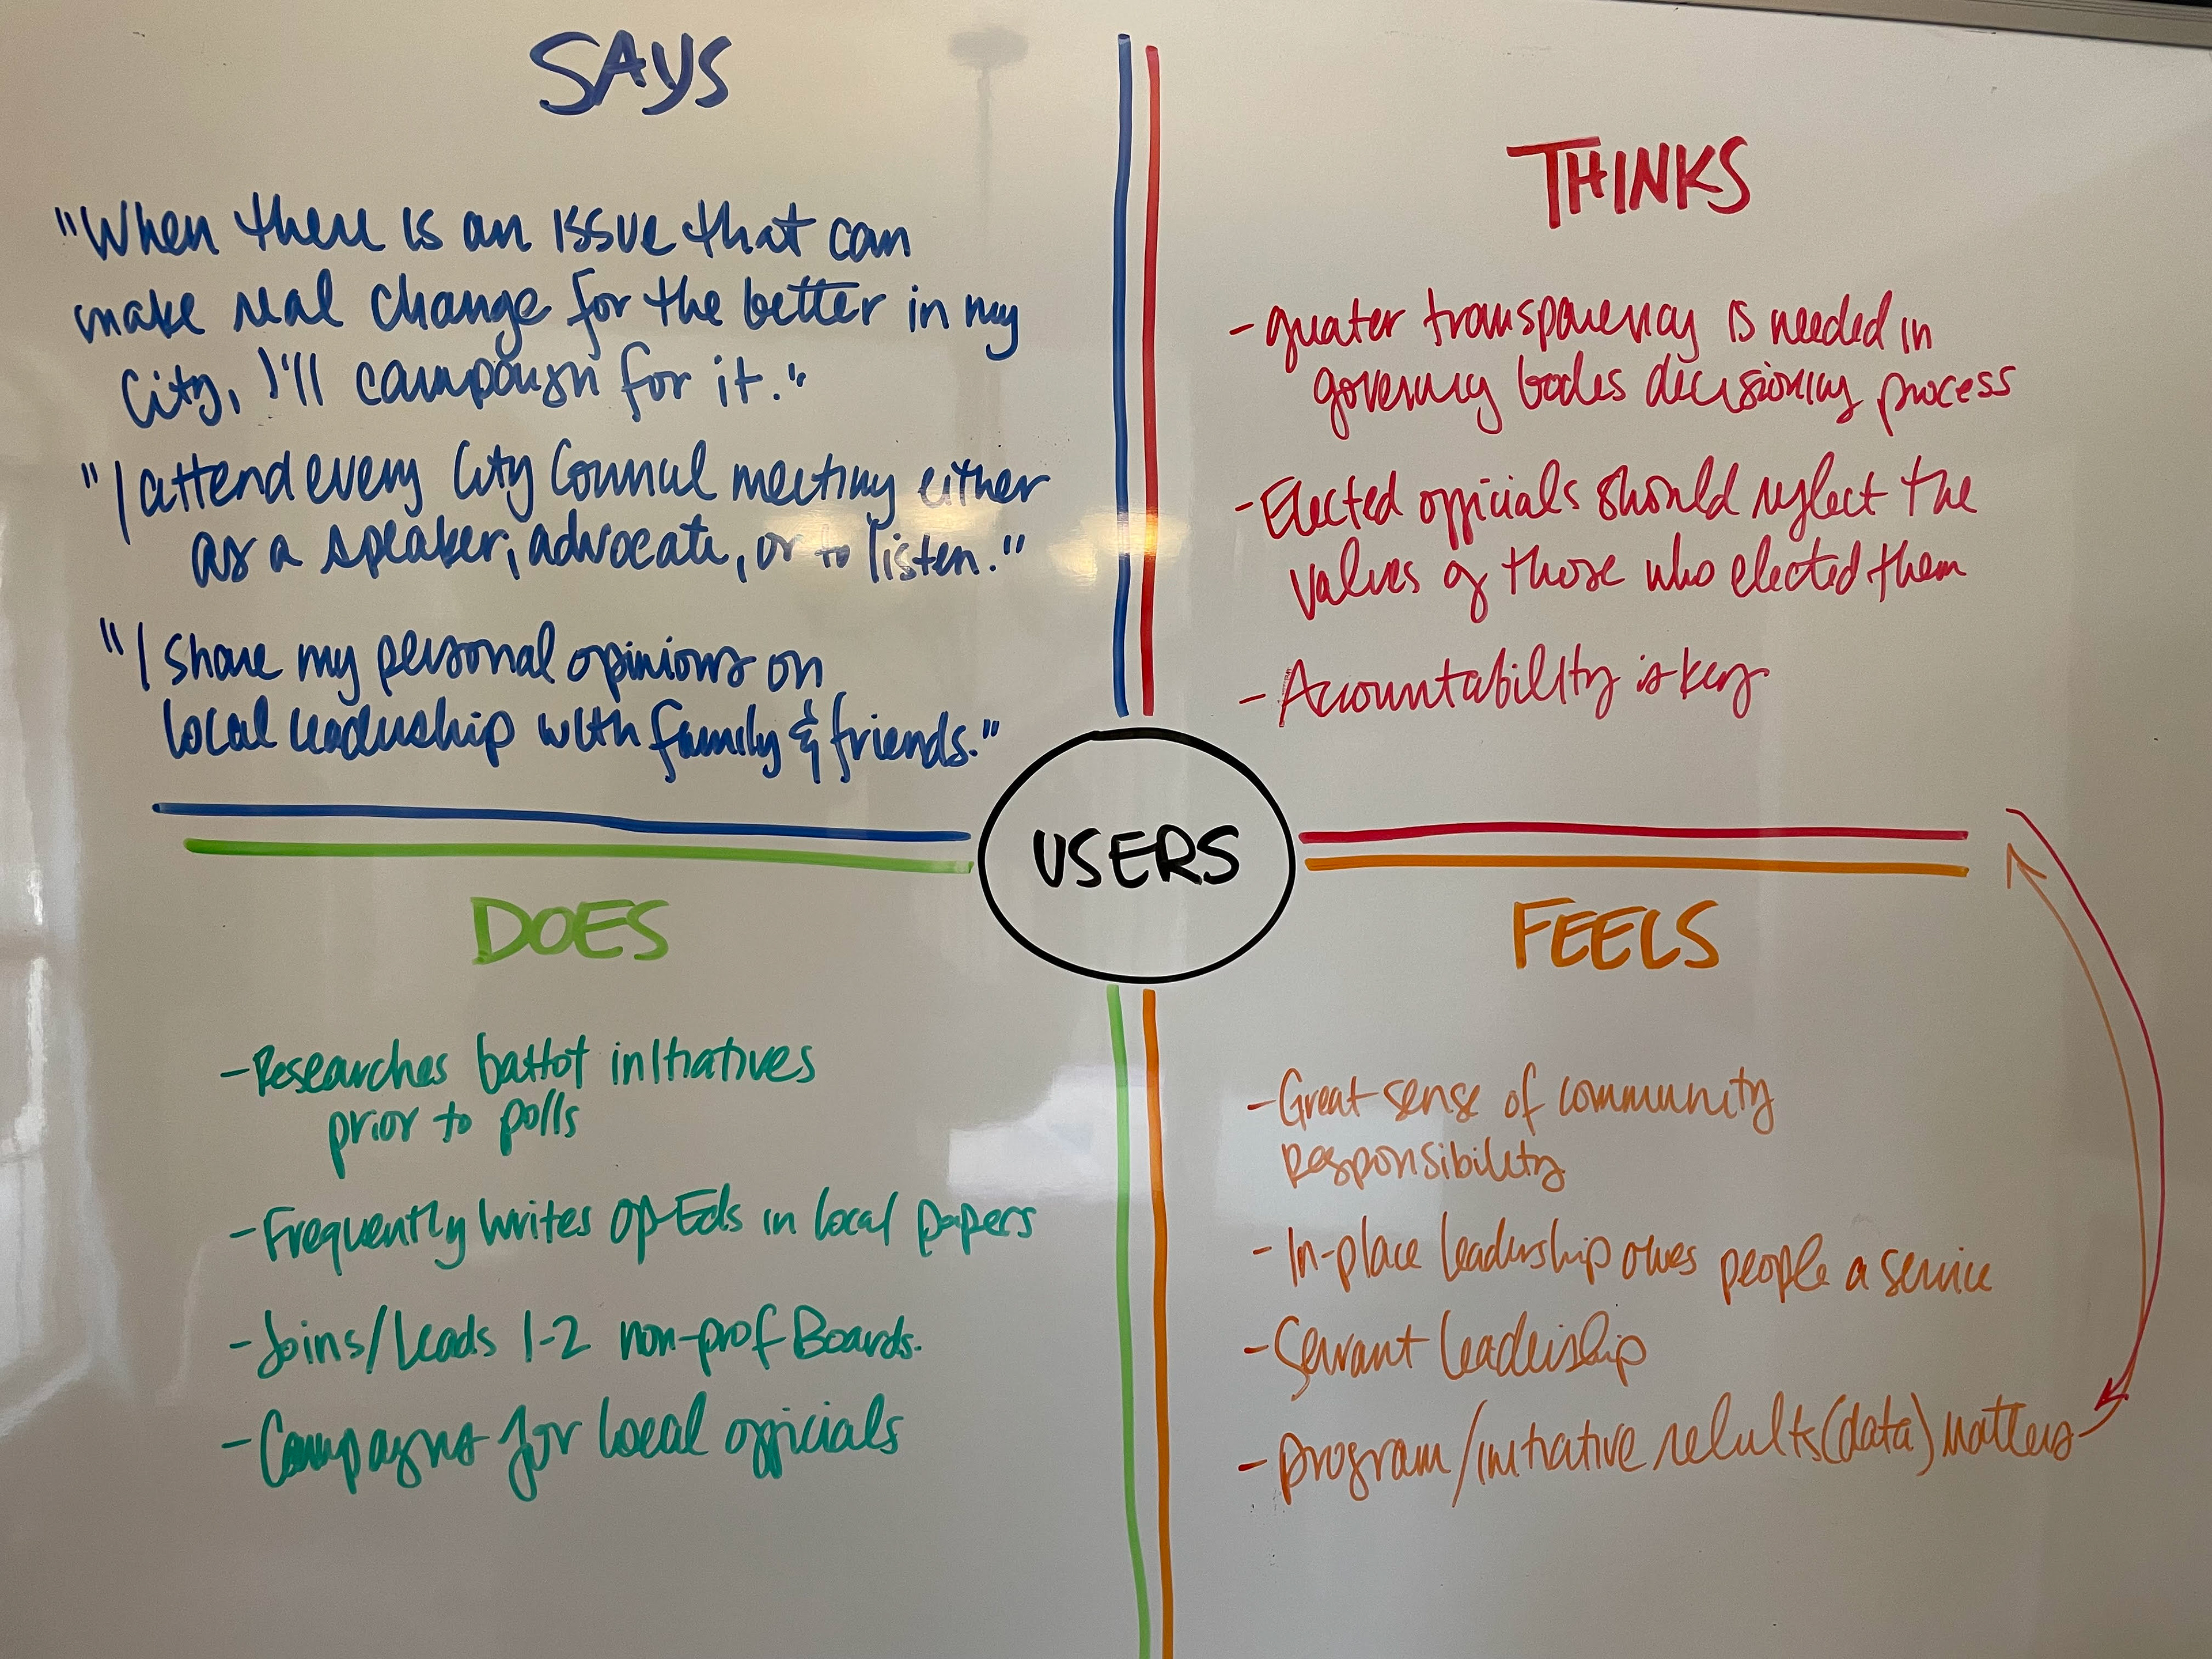 SAYS
"When there is an issue that can
make real change for the better in my
City, I'll campaign for it."
"I attend every City Council meeting either
as a speaker, advocate, or to listen."
"I share my personal opinions on
local leadership with family & friends."
THINKS
- greater transparency is needed in
governing bodies decisioning process
- Elected officials should reflect the
values of those who elected them
- Accountability is key
USERS
DOES
- Researches ballot initiatives
prior to polls
- Frequently writes Op-Eds in local papers
- Joins/Leads 1-2 non-prof Boards.
- Campaigns for local officials
FEELS
- Great sense of community
responsibility
- In-place leadership owes people a service
- Servant leadership
- program/initiative results (data) matters